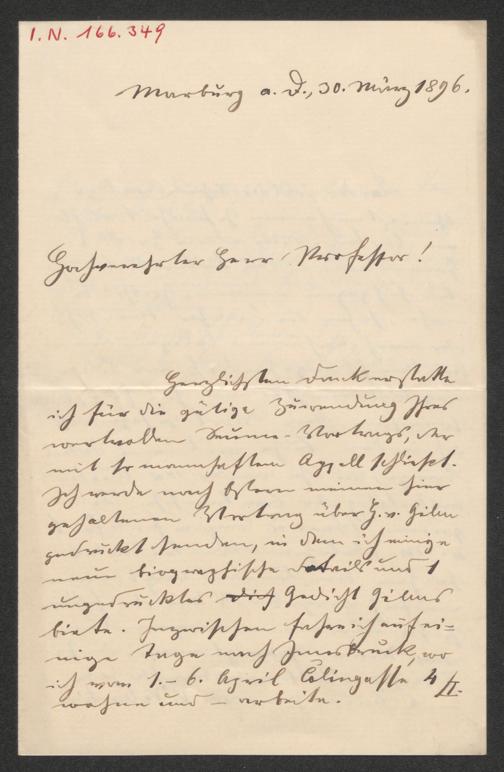 I.N. 166.349
Marburg a. D., 30. März 1896.
Hochverehrter Herr Professor!
Herzlichsten Dank erstatte
ich für die gütige Zuwendung Ihres
wertvollen Seume-Vortrags, der
mit so mannhaftem Appell schließt.
Ich werde nach Ostern meinen hier
gehaltenen Vortrag über H. v. Gilm
gedruckt senden, in dem ich einige
neue biographische Details und 1
ungedrucktes Gedicht Gilms
biete. Inzwischen fahre ich auf ei-
nige Tage nach Innsbruck, wo
ich vom 1.- 6. April Colingasse 4 II.
wohne und - arbeite.